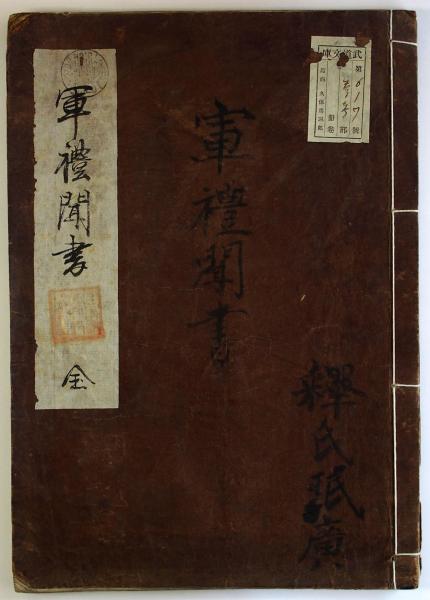 軍禮聞書
全
軍禮聞書
釋氏珉廣
武道文庫
第617號
部
冊
卷